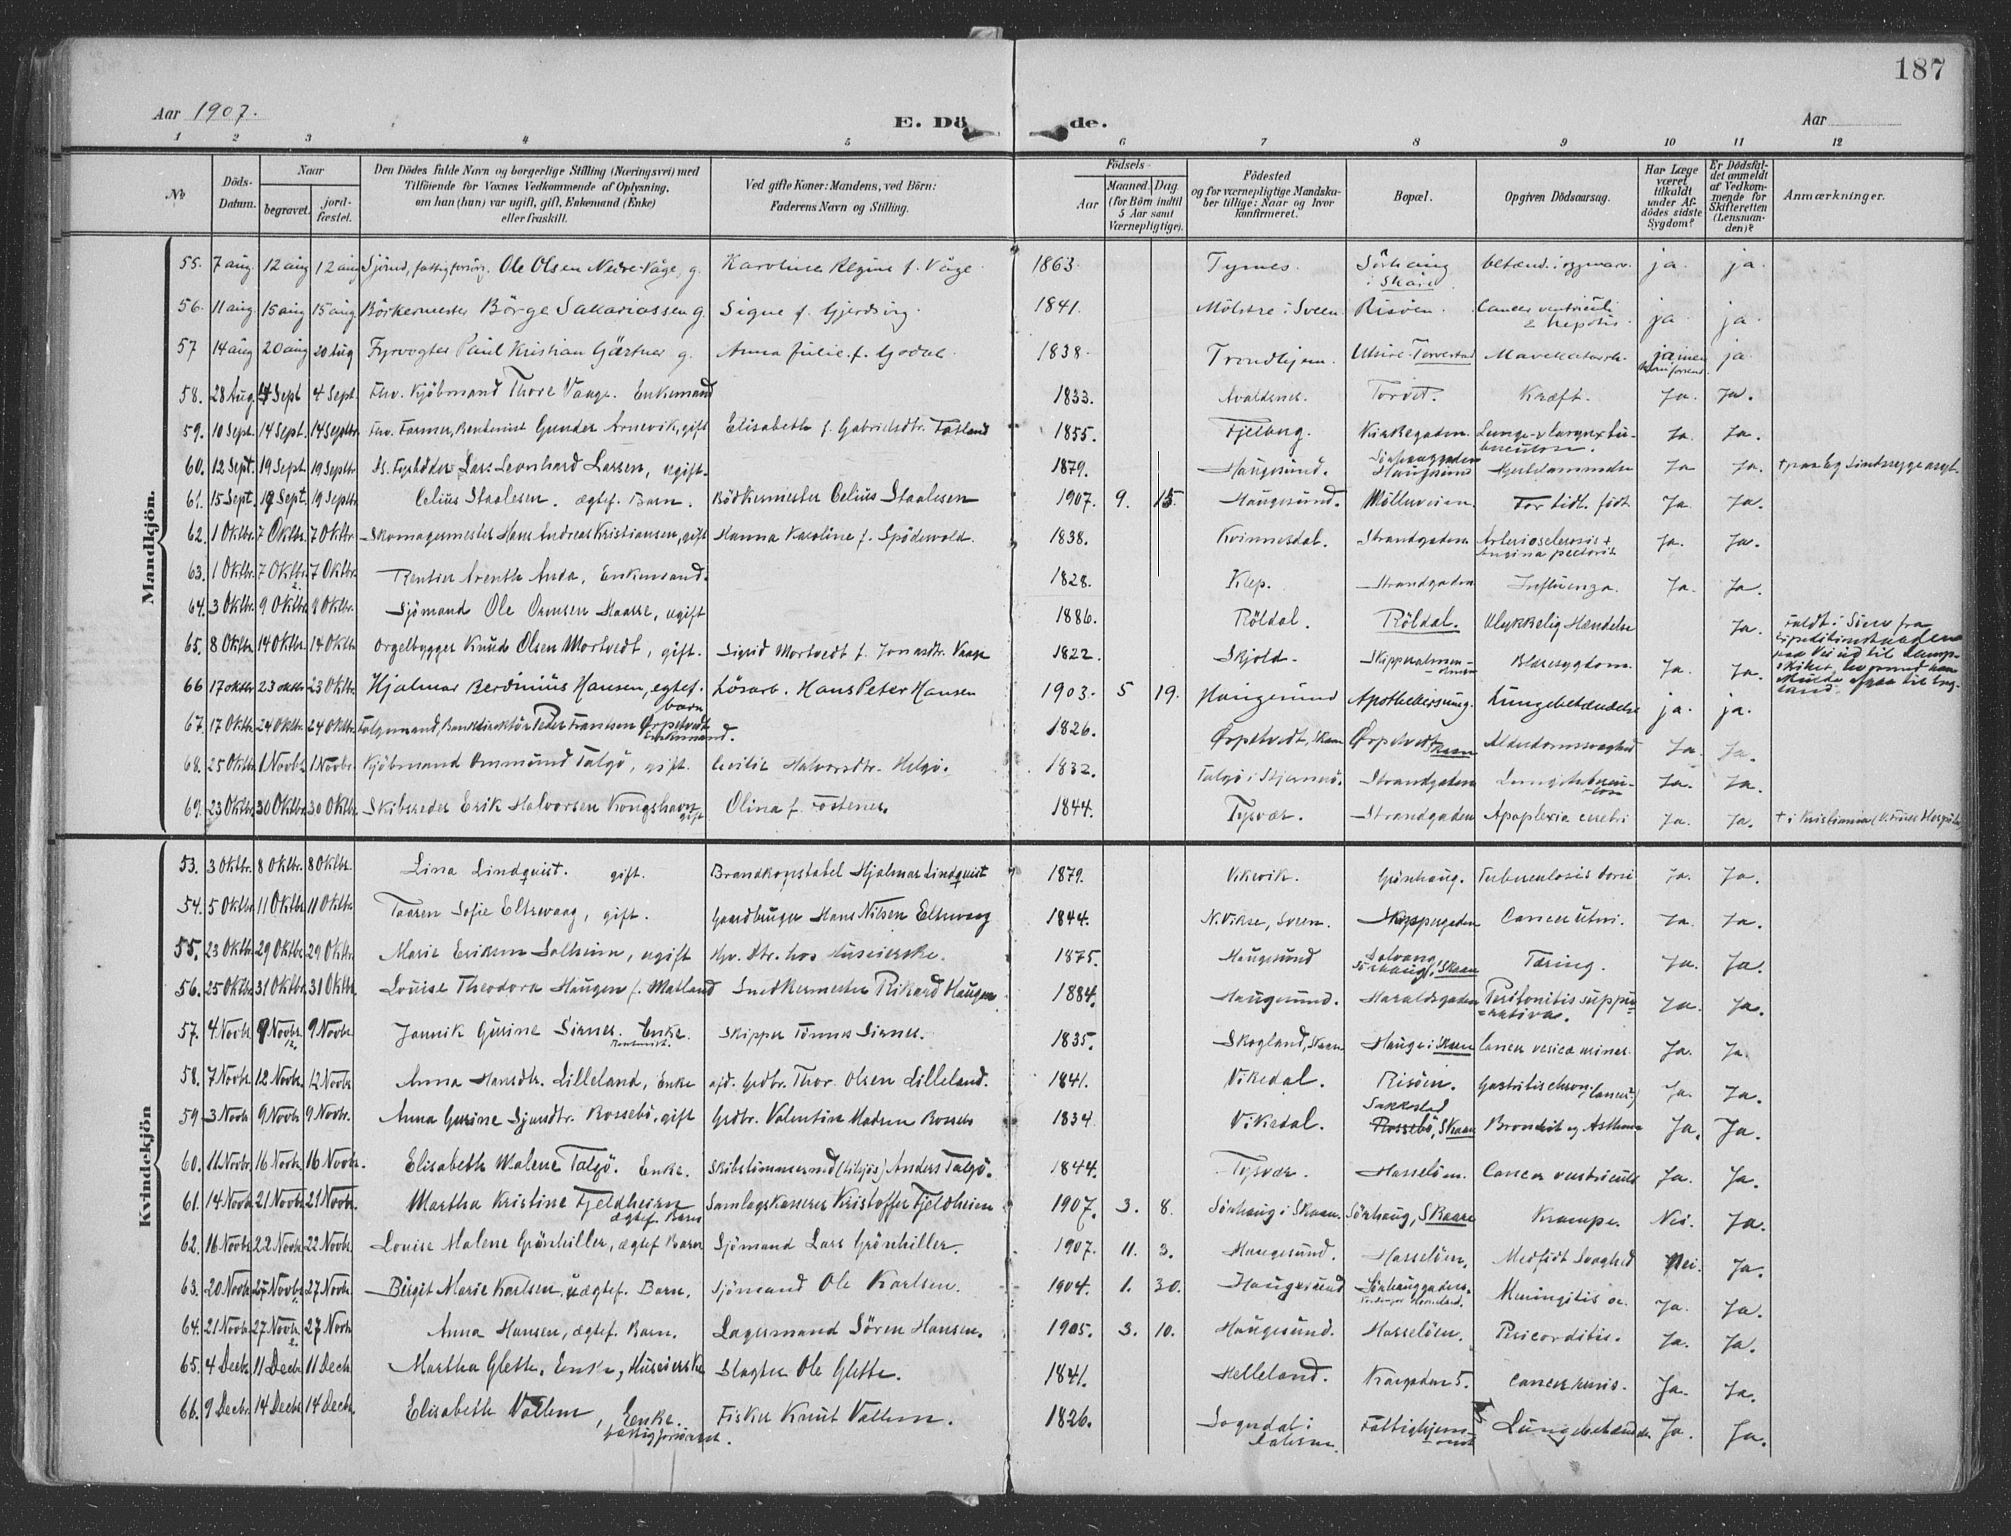 187
Aar 1907.
E. Dö de.
Aar
1 2 3 4 5 6 7 8 9 10 11 12
No
Döds-Datum.
Naar
begravet.
jord-fæstet.
Den Dödes fulde Navn og borgerlige Stilling (Næringsvei) med
Tilföiende for Voxnes Vedkommende af Oplysning,
om han (hun) var ugift, gift, Enkemand (Enke)
eller fraskilt.
Ved gifte Koner: Mandens, ved Börn:
Faderens Navn og Stilling.
Födsels-
Aar
Maaned. Dag.
(for Börn indtil
5 Aar samt
Værnepligtige).
Födested
og for værnepligtige Mandska-
ber tillige: Naar og hvor
konfirmeret.
Bopæl.
Opgiven Dödsaarsag.
Har Læge
været
tilkaldt
under Af-
dödes sidste
Sygdom?
Er Dödsfal-
det anmeldt
af Vedkom-
mende for
Skifteretten
(Lensman-
den)?
Anmærkninger.
Mandkjön.
55. 7 aug 12 aug 12 aug Ole Olsen Nedre-Våge, g. Karoline Regine f. Våge. 1863. Tysnes. Sörhaug i Skåre ja. ja.
56. 11 aug 15 aug 15 aug Bökermester Börge Sakariassen g. Signe f. 1841. Mölstre i Sveen Risöen. Cancer ventriculi & hepatis. ja ja.
57 14 aug 20 aug 20 Aug Fyrvogter Paul Kristian Gärtner g. Anna Julie f. Godal. 1838. Trondhjem. Utsire-Torvestad Mavekatarrh. ja
58. 28 Aug. 4 Sept 4 Sept. Fhv. Kjöbmand Thore Vaage. Enkemand 1833. Avaldsnes. Torvet. Kræft. Ja. Ja.
59. 10 Sept. 14 Sept. 14 Septbr. Fhv. Farmer, Rentenist Gunder Arnevik, gift Elisabeth f. Gabrielsdtr. Tatland 1855. Fjelberg. Kirkegaden. Lunge- & larynxtuberculose. Ja. Ja.
60. 12 Sept. 19 Sept 19 Septbr. Lars Leonhard Larsen, ugift. 1879. Haugesund. Sörhauggaden Haugesund Hjertelammelse Ja Ja.
61. 15 Sept. 19 Sept. 19 Septbr Celius Staalesen. ægtef. Barn. Bödkermester Celius Staalesen 1907. 9. 15. Haugesund. Mölleveien. For tidl. födt Ja Ja.
62. 1 Oktbr. 7 Oktbr. 7 Oktbr. Skomagermester Hans Andreas Kristiansen, gift Hanna Karoline f. Spödervold. 1838. Kvinnesdal. Strandgaden Arteriosclerosis + Angina pectoris Ja. Ja.
63. 1 Oktbr. 7 Oktbr. 7 Oktbr. Rentier Arenth Anda, Enkemand. 1828. Klep. Strandgaden Influenza. Ja. Ja.
64. 3 Oktbr. 9 Oktbr. 9 Oktbr. Sjömand Ole Ormsen Haare, ugift 1886. Röldal. Röldal. Ulykkelig Hændelse Ja. Faldt i Sjöen fra
65. 8 Oktbr. 14 Oktbr. 14 Oktbr. Orgelbygger Knud Olsen Mortvedt, gift. Sigrid Mortvedt f. Jonasdtr. Vaage 1822. Skjold. Skipperalmenningen Blæresygdom. Ja. Ja.
66 17 oktbr 23 oktbr 23 Oktbr. Hjalmar Berdinius Hansen, egtef. barn Lösarb. Hans Peter Hansen 1903. 5 19. Haugesund Apothekersung. Lungebetændelse ja. ja.
67. 17 Oktbr. 24 Oktbr. 24 Oktbr. Bankdirektör Peder Frantsen Ørpetvedt Enkemand. 1826. Ørpetvedt, Skaare Ørpetvedt Skaare Alderdomssvaghed Ja. Ja.
68. 25 Oktbr. 1 Novbr. 1 Novbr. Kjöbmand Ommund Talgö, gift. Cecilie Halvorsdtr. Helgö. 1832. Talgö i Strandgaden Lungetuberculose Ja. Ja.
69. 23 Oktbr. 30 Oktbr. 30 Oktbr. Skibsreder Erik Halvorsen Kongshavn gift Olina f. Fostenes 1844. Tysvær. Strandgaden Apoplexia cerebri Ja. Ja. † i Kristiania
Kvindekjön
53. 3 Oktbr. 8 Oktbr. 8 Oktbr. Lina Lindquist. gift. Brandkonstabel Hjalmar Lindquist 1879. Vikevik. Grönhaug. Tuberculosis dorsi Ja. Ja.
54. 5 Oktbr. 11 Oktbr. 11 Oktbr. Taaren Sofie Eltrevaag, gift. Gaardbruger Hans Nilsen Eltrevaag 1844. N. Vikse, Sveen. Skippergaden Cancer uteri. Ja. Ja.
55. 23 Oktbr. 29 Oktbr. 29 Oktbr. Marie Eriksen Solheim, ugift 1875. Haugesund Solvang Sörhaug, Skaare Tæring. Ja. Ja.
56. 25 Oktbr. 31 Oktbr. 31 Oktbr. Louise Theodora Haugen f. Matland Snedkermester Rikard Haugen 1884. Haugesund. Haraldsgaden Peritonitis suppurativa. Ja. Ja.
57. 4 Novbr. 9 Novbr. 9 Novbr. Jannik Gurine Sirnes. Enke. Skipper Tönnes Sirnes. 1835. Skogland, Skaare Hauge i Skaare Cancer vesicæ urinar. Ja. Ja.
58. 7 Novbr. 12 Novbr. 12 Novbr Anna Hansdtr. Lilleland, Enke afd. Grdbr. Thor Olsen Lilleland. 1841. Vikedal. Risöen. Gastritis chron. (cancer?) Ja. Ja.
59 3 Novbr 9 Novbr. 9 Novbr. Anna Gurine Sjursdtr. Rossebö, gift Grdbr. Valentin Madsen Rossebö 1834 Vikedal. Sakkestad Rossebö, Skaare Bronchit og Asthma Ja. Ja.
60. 11 Novbr. 16 Novbr. 16 Novbr. Elisabeth Malene Talgö. Enke. Skibstömmermd. Anders Talgö. 1844. Tysvær. Hasselöen. Cancer ventriculi Ja. Ja.
61. 14 Novbr. 21 Novbr. 21 Novbr. Martha Kristine Fjeldheim ægtef. Barn Samlagskasserer Kristoffer Fjeldheim 1907. 3. 8. Sörhaug i Skaare. Sörhaug, Skaare Krampe. Nei. Ja.
62. 16 Novbr. 22 Novbr. 22 Novbr. Louise Malene Grönhiller, ægtef Barn Sjömand Lars Grönhiller. 1907. 11. 3. Haugesund. Hasselöen. Medfödt Svaghed Nei. Ja.
63. 20 Novbr. 27 Novbr. 27 Novbr. Birgit Marie Karlsen, uægtef. Barn. Sjömand Ole Karlsen. 1904. 1. 30. Haugesund Sörhauggaden. Meningitis Ja. Ja.
64. 21 Novbr. 27 Novbr. 27 Novbr Anna Hansen, ægtef. Barn. Lagermand Sören Hansen. 1905. 3. 10. Haugesund. Hasselöen. Pericarditis. Ja. Ja.
65. 4 Decbr. 11 Decbr. 11 Decbr. Martha Glette, Enke, Huseierske Slagter Ole Glette. 1841. Helleland. Kaigaden 5. Ja. Ja.
66. 9 Decbr. 14 Decbr. 14 Decbr. Elisabeth Vallem, Enke. fattigforsörget. Fisker Knut Vallem. 1826. Sogndal i Dalerne. Fattighjemmet Lungebetændelse Ja. Ja.